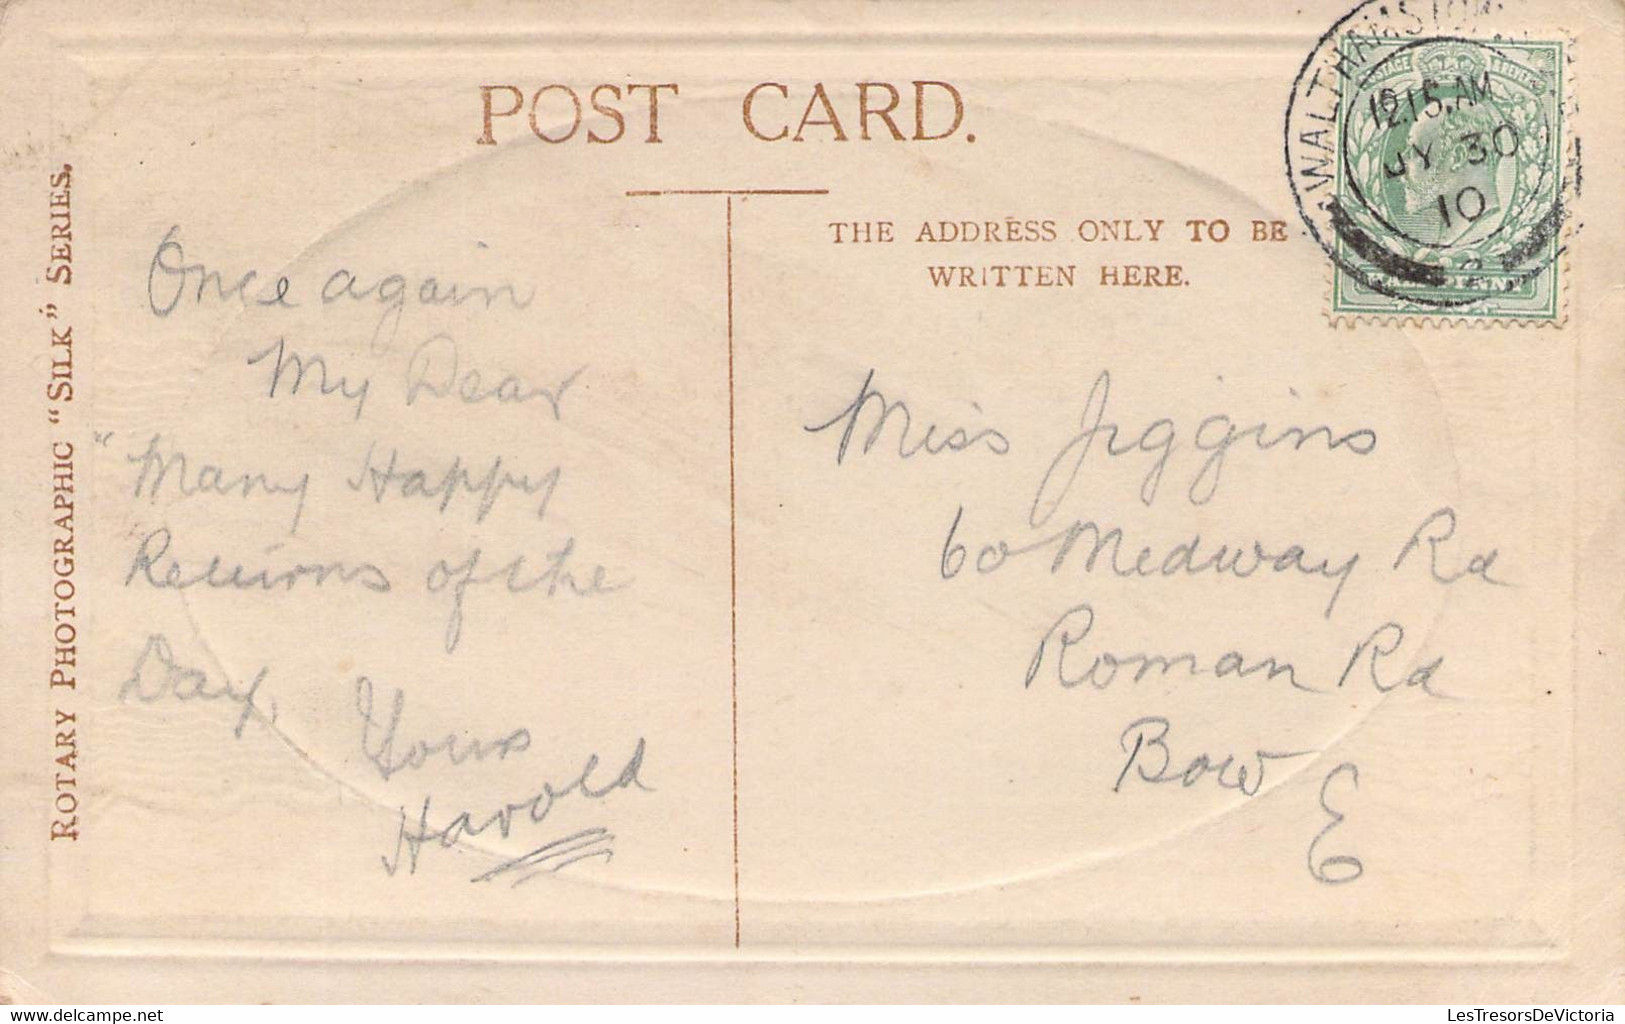 POST CARD.
ROTARY PHOTOGRAPHIC "SILK" SERIES.
THE ADDRESS ONLY TO BE
WRITTEN HERE.
WALTHAMSTOW
12.15.AM
JY 30
10
Once again
My Dear
"Many Happy
Returns of the
Day,
Yours
Harold
Miss Jiggins
60 Medway Rd
Roman Rd
Bow
E
www.delcampe.net
LesTresorsDeVictoria